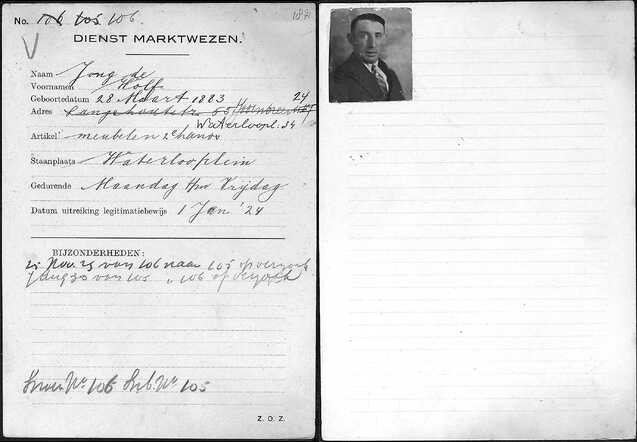 No. 106 105 106.
DIENST MARKTWEZEN.
Naam Jong de
Voornamen Wolf
Geboortedatum 28 Maart 1883
Adres Langehoutstr. 65 24
Waterloopl: 24
Artikel meubelen 2e hands
Staanplaats Waterlooplein
Gedurende Maandag t/m Vrijdag
Datum uitreiking legitimatiebewijs 1 Jan '24
BIJZONDERHEDEN:
Nov. 29 van 106 naar 105 op verzoek
Jan 30 van 105 " 106 op verzoek
No 106 No 105
Z. O. Z.